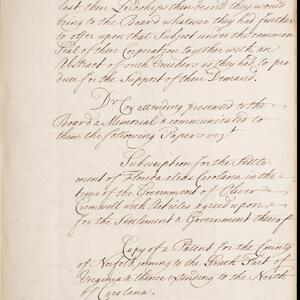 last, their Lordships then desired they would
bring to the Board whatever they had further
to offer upon that Subject under the common
Seal of their Corporation together with an
Abstract of such Vouchers as they had to pro
duce for the Support of their Demand.
Dr Cox attending presented to the
Board a Memorial & communicated to
them the following Papers vizt
Subscription for the Settle
ment of Florida alias Carolana in the
time of the Government of Oliver
Cromwell with Articles agreed upon
for the Settlement & Government thereof
Copy of a Patent for the County
of Norfolk joining to the South Part of
Virginia & thence extending to the North
of Carolana.